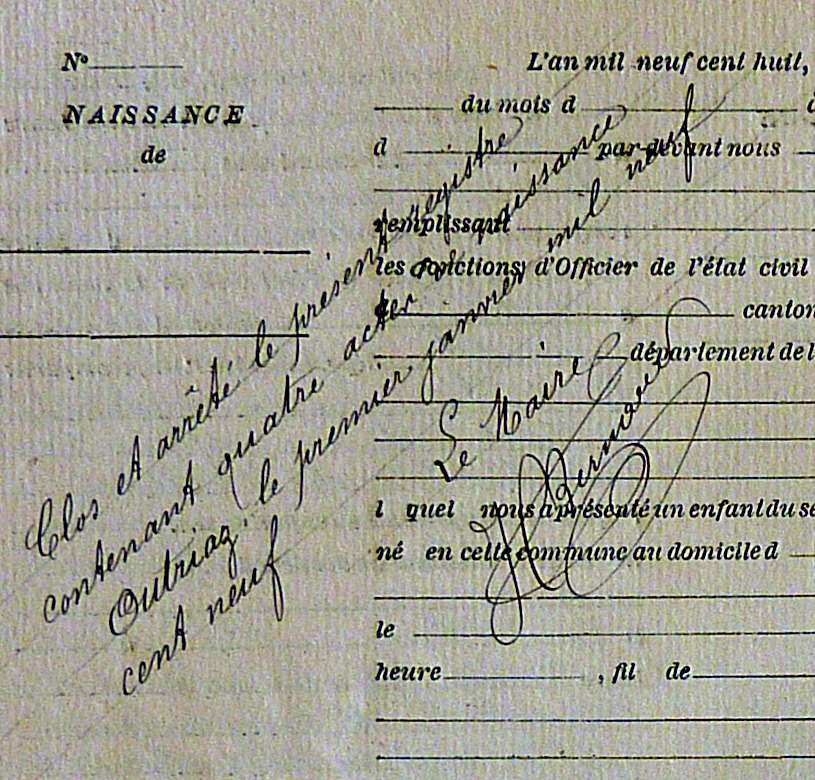 N°
NAISSANCE
de
L'an mil neuf cent huit,
du mois d
d par-devant nous
remplissant
les fonctions d'Officier de l'état civil
d canton
département de l
l quel nous a présenté un enfant du se
né en cette commune au domicile d
le
heure , fil de
Clos et arrêté le présent registre
contenant quatre actes de naissance
Outriaz, le premier janvier mil neuf
cent neuf
Le Maire